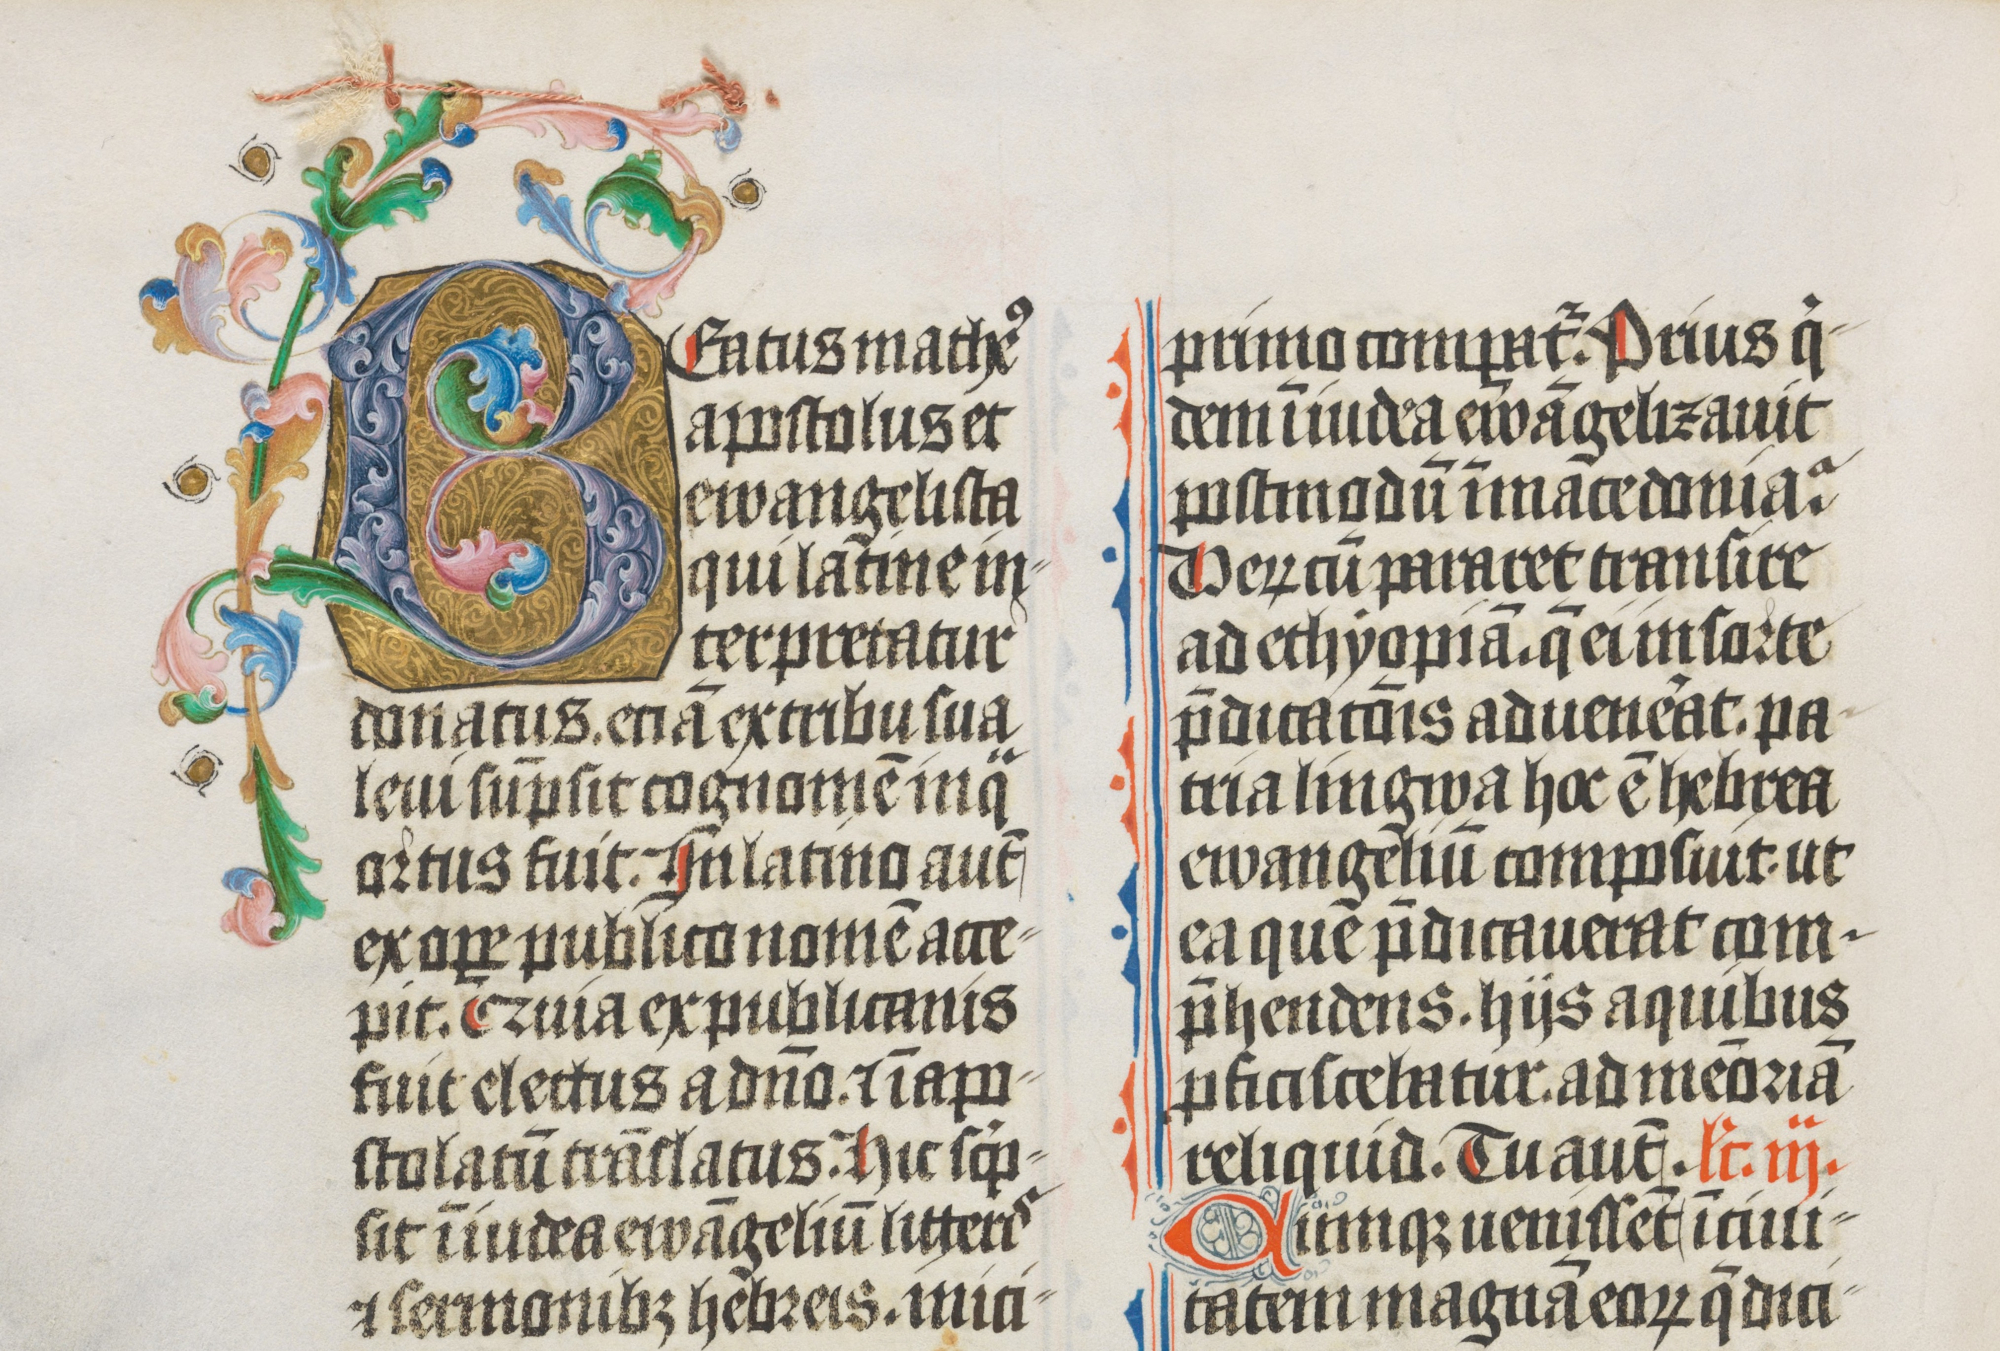 BEatus matheꝰ
apostolus et
ewangelista
qui latīne in-
terpretatur
donatus. eciā ex tribu sua
leui sūpsit cognomē in q̈
ortus fuit. In latino aut̄
ex oꝑe publico nomē acce-
pit. Ezuia ex publicanis
fuit electus a dn̄o. ⁊ ī apo-
stolatū trāslatus. Hic sc̍p-
sit ī iudea ewāgeliū litter̄
⁊ sermonibꝫ hebreis. inici-
primo comꝑat᷑. Prius q̍-
dem ī iudea ewāgelizauit
postmodū ī macedoniaᷓ.
Verꝝ cū pararet transire
ad ethyopiā. q̄ ei in sorte
p̄dicatōis aduen̄at. pa-
tria lingwa hoc ē hebrea
ewangeliū composuit. ut
ea que p̄dicauerat com-
p̄hendens. hijs a quibus
ꝓficiscebatur. ad memoriā
reliquid. Tu aut̄. lc̄. iij.
Cumqꝫ uenissēt ī ciui-
tatem magnā eoꝝ q̄ dici